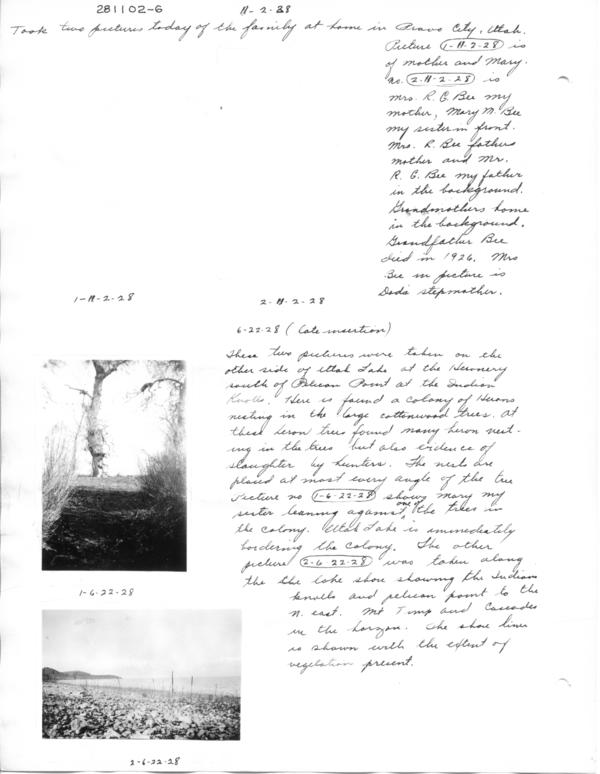 281102-6 11-2-28
Took two pictures today of the family at home in Provo City, Utah.
Picture 1-11-2-28 is
of mother and Mary.
no. 2-11-2-28 is
Mrs. R. G. Bee my
mother, Mary M. Bee
my sister in front.
Mrs. R. Bee fathers
mother and Mr.
R. G. Bee my father
in the background.
Grandmothers home
in the background.
Grandfather Bee
died in 1926. Mrs
Bee in picture is
Dads stepmother.
1-11-2-28
2-11-2-28
6-22-28 (late insertion)
These two pictures were taken on the
other side of Utah Lake at the Heronery
south of Pelican Point at the Indian
Knolls. Here is found a colony of Herons
nesting in the large cottonwood trees. At
these heron trees found many heron nest-
ing in the trees but also evidence of
slaughter by hunters. The nests are
placed at most every angle of the tree
Picture no 1-6-22-28 shows Mary my
sister leaning against one of the trees in
the colony. Utah Lake is immediately
bordering the colony. The other
picture 2-6-22-28 was taken along
the the lake shore showing the Indian
knolls and pelican point to the
N. east. Mt Timp and Cascades
in the horizon. The shore line
is shown with the extent of
vegetation present.
1-6-22-28
2-6-22-28